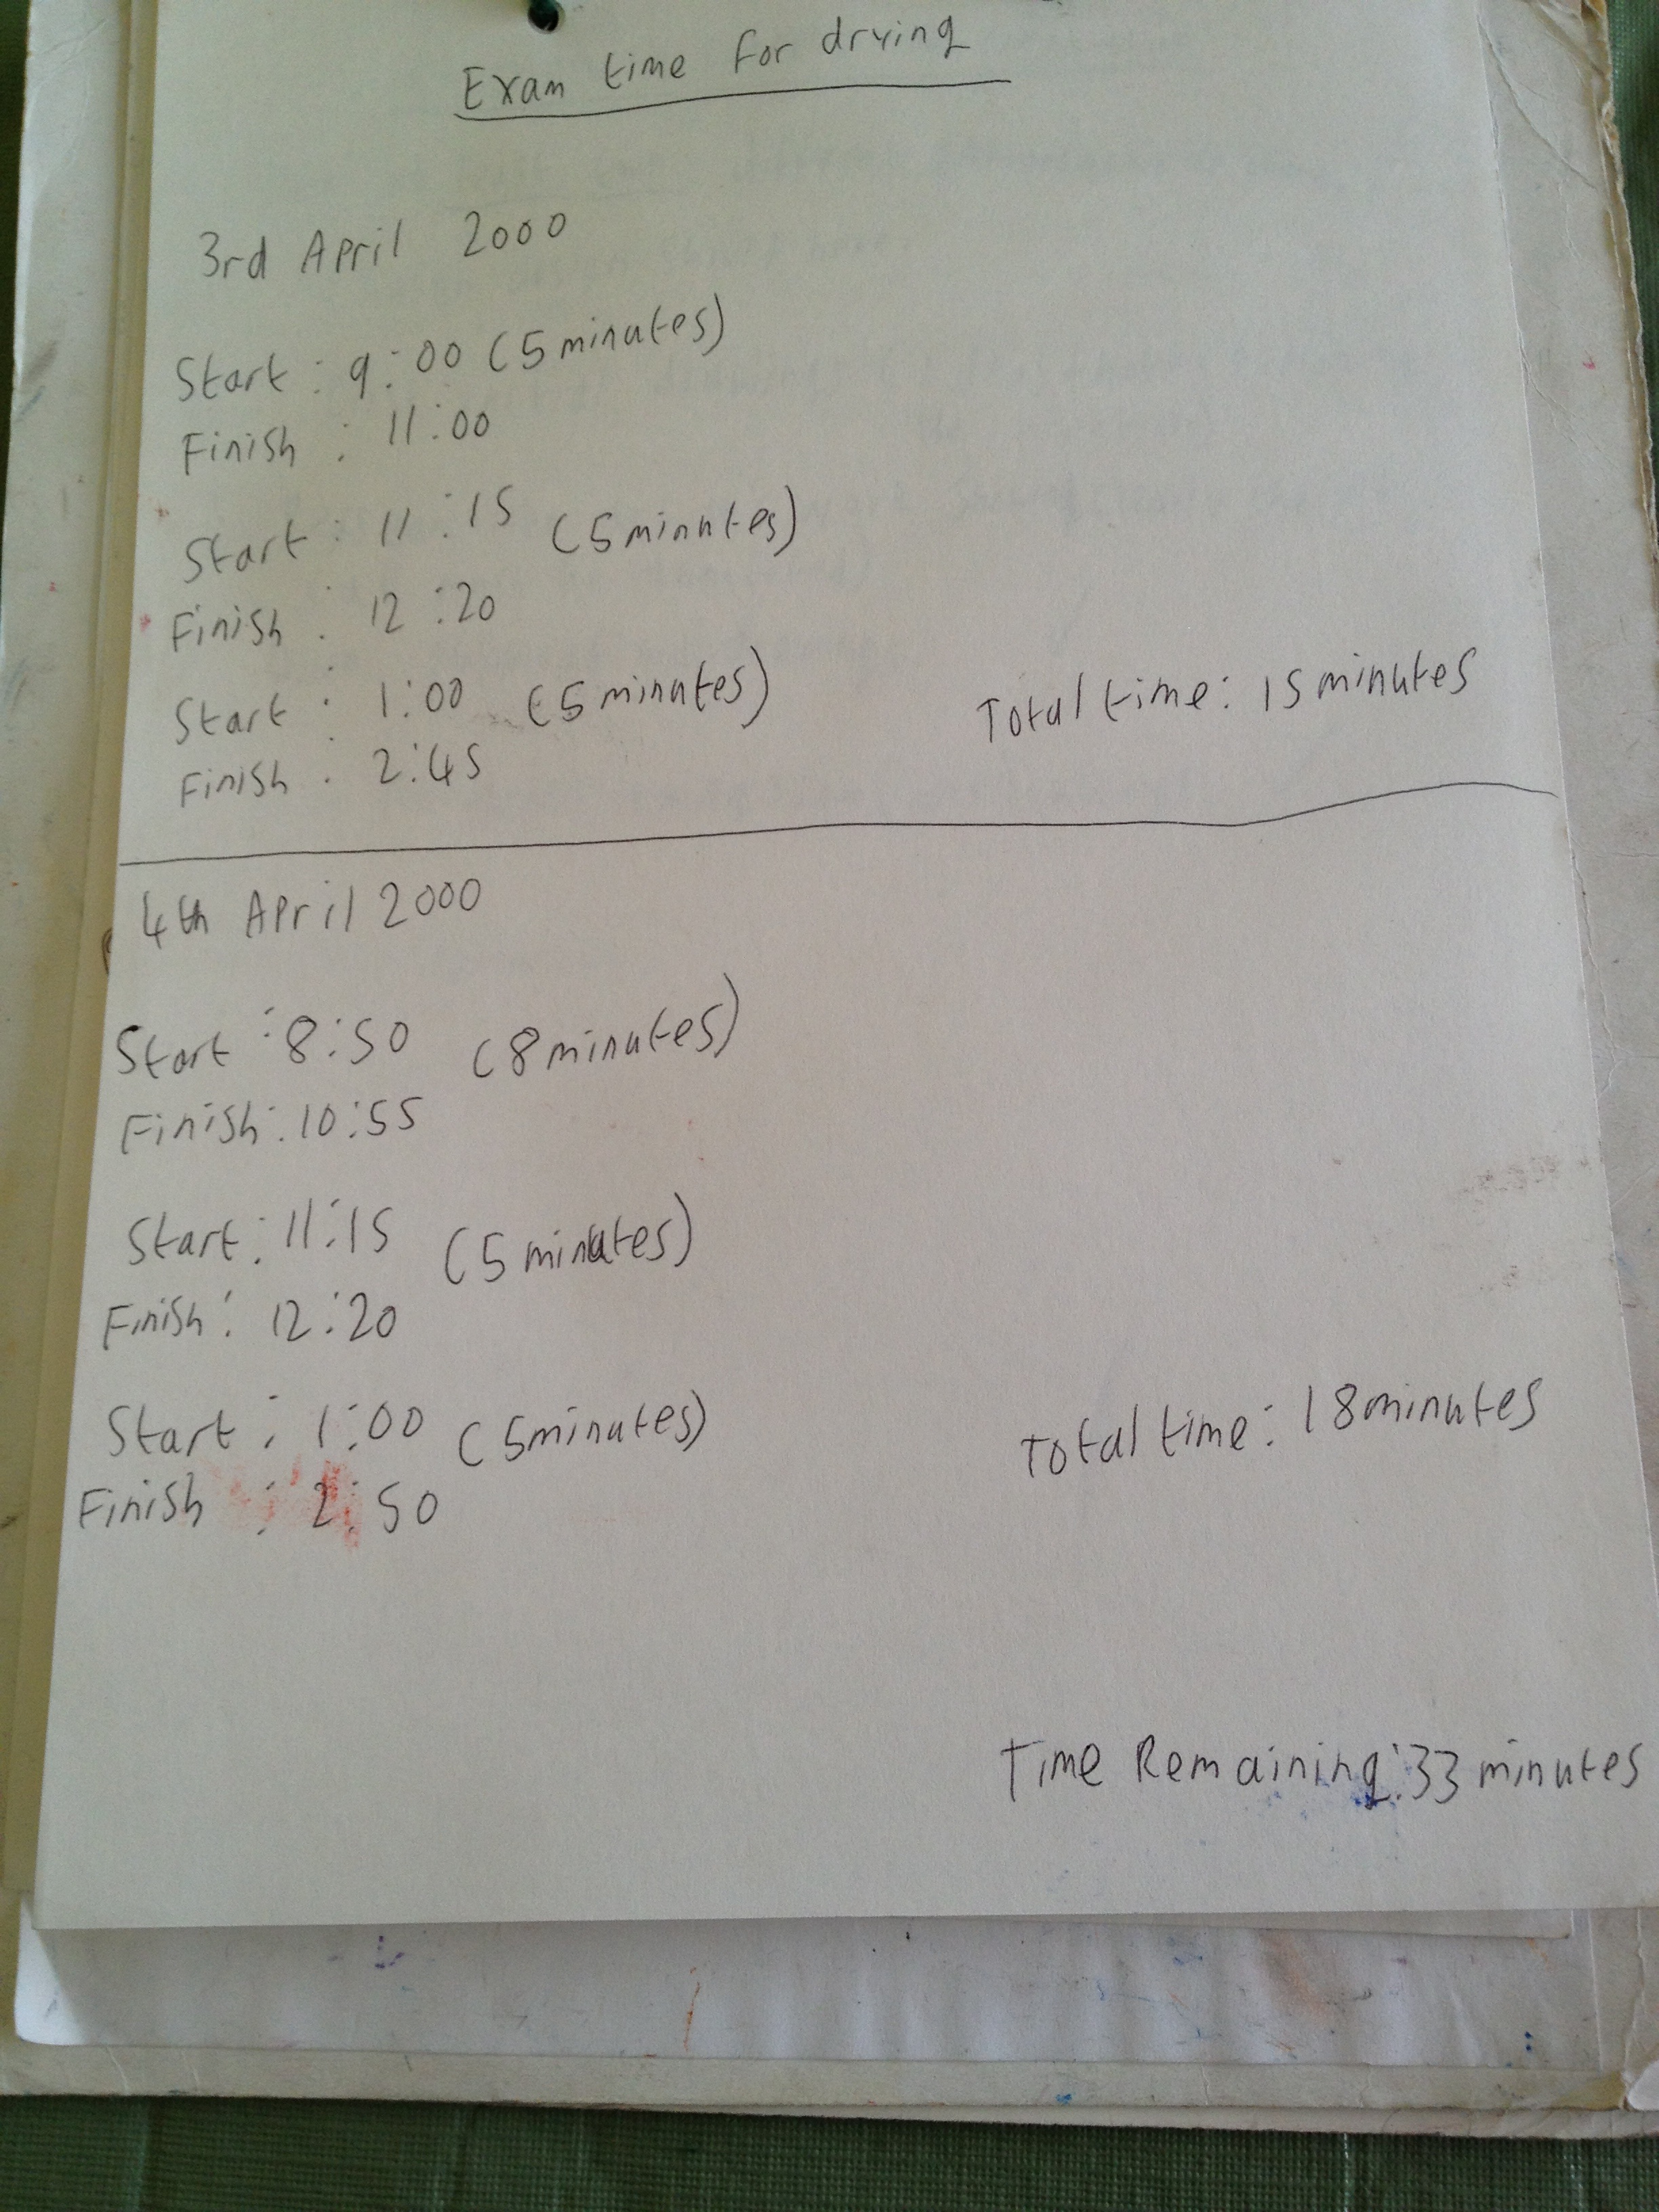 Exam time for drying
3rd April 2000
Start : 9:00 (5 minutes)
Finish : 11:00
Start : 11:15 (5 minutes)
Finish : 12:20
Start : 1:00 (5 minutes)
Total time: 15 minutes
Finish : 2:45
4th April 2000
Start : 8:50 (8 minutes)
Finish : 10:55
Start : 11:15 (5 minutes)
Finish : 12:20
Start : 1:00 (5 minutes)
Total time: 18 minutes
Finish : 2:50
Time Remaining: 33 minutes